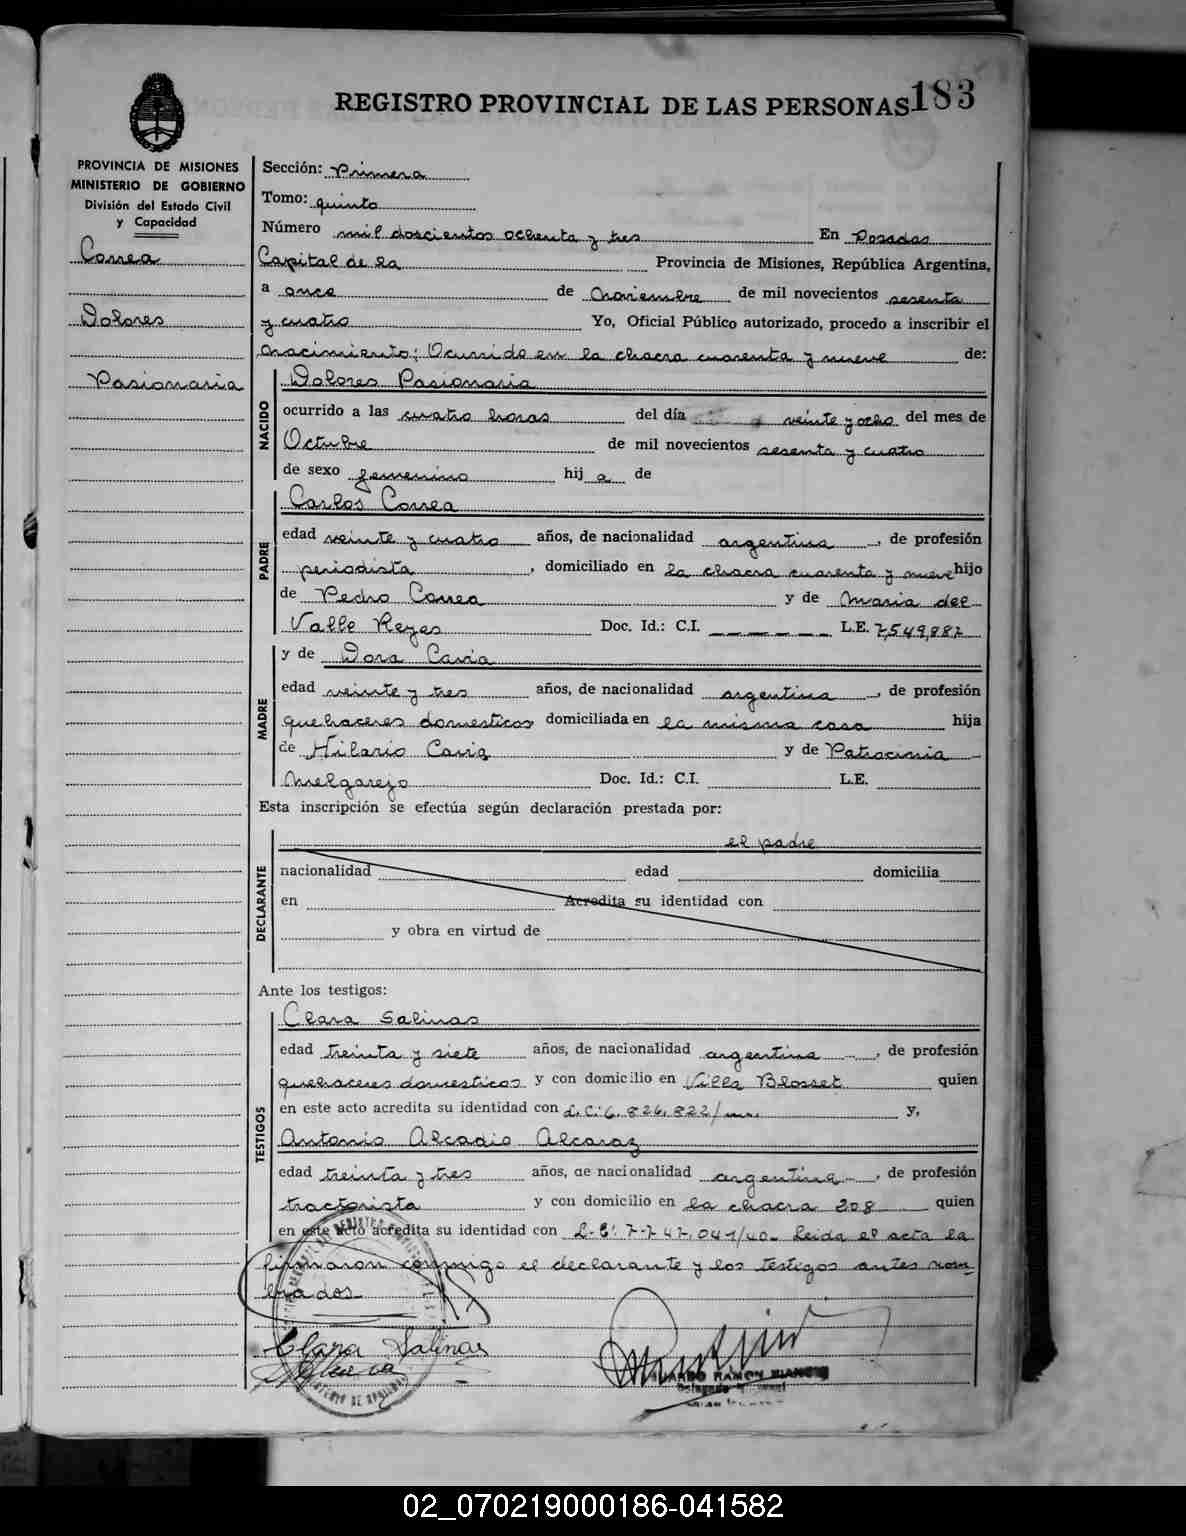 REGISTRO PROVINCIAL DE LAS PERSONAS 183
PROVINCIA DE MISIONES
MINISTERIO DE GOBIERNO
División del Estado Civil
y Capacidad
Correa
Dolores
Pasionaria
Sección: Primera
Tomo: quinto
Número mil doscientos ochenta y tres En Posadas
Capital de la Provincia de Misiones, República Argentina,
a once de Noviembre de mil novecientos sesenta
y cuatro Yo, Oficial Público autorizado, procedo a inscribir el
Nacimiento: Ocurrido en la chacra cuarenta y nueve de:
NACIDO
Dolores Pasionaria
ocurrido a las cuatro horas del día veinte y ocho del mes de
Octubre de mil novecientos sesenta y cuatro
de sexo femenino hij a de
PADRE
Carlos Correa
edad veinte y cuatro años, de nacionalidad argentina, de profesión
periodista, domiciliado en la chacra cuarenta y nueve hijo
de Pedro Correa y de Maria del
Valle Reyes Doc. Id.: C.I. — — — — — L.E. 7,549,887
MADRE
y de Dora Cavia
edad veinte y tres años, de nacionalidad argentina, de profesión
quehaceres domesticos domiciliada en la misma casa hija
de Hilario Cavia y de Patrocinia
Melgarejo Doc. Id.: C.I. L.E.
Esta inscripción se efectúa según declaración prestada por:
DECLARANTE
el padre
nacionalidad edad domicilia
en Acredita su identidad con
y obra en virtud de
Ante los testigos:
TESTIGOS
Clara Salinas
edad treinta y siete años, de nacionalidad argentina, de profesión
quehaceres domesticos y con domicilio en Villa Blosset quien
en este acto acredita su identidad con L.C: 6.826.822/ y,
Antonio Alcadio Alcaraz
edad treinta y tres años, de nacionalidad argentina, de profesión
tractorista y con domicilio en la chacra 208 quien
en este acto acredita su identidad con L.E: 7.747.041/40- Leida el acta la
firmaron conmigo el declarante y los testigos antes nom-
brados
Clara Salinas
RAMON
02_070219000186-041582